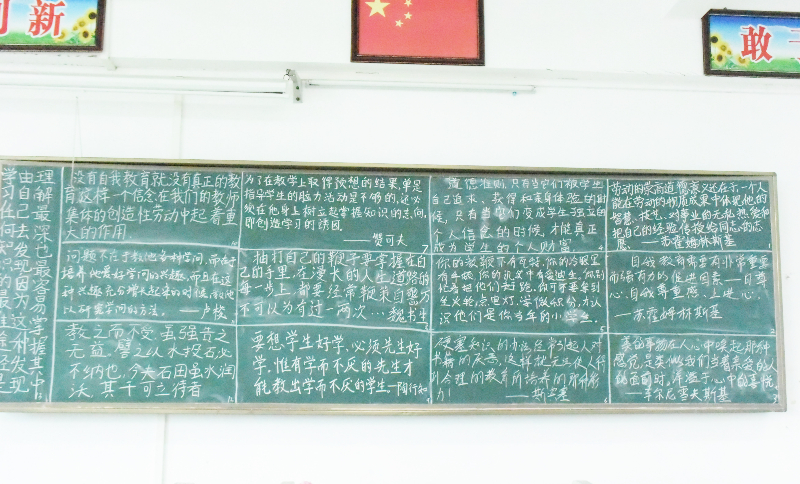 创新
敢于
学习任何知识的最佳途径是
由自己去发现因为这种发现
理解最深也最容易掌握其中
没有自我教育就没有真正的教
育这样一个信念在我们的教师
集体的创造性劳动中起着重
大的作用
为了在教学上取得预想的结果,单是
指导学生的脑力活动是不够的,还必
须在他身上树立起掌握知识的志向,
即创造学习的诱因
——赞可夫
道德准则,只有当它们被学生
自己追求、获得和亲身体验的时
候,只有当它们变成学生独立的
个人信念的时候,才能真正
成为学生的个人财富
劳动的崇高道德意义还在于一个人
能在劳动的物质成果中体现他的
智慧、技艺、对事业的无私热爱和
把自己的经验传授给同志的志
愿. ——苏霍姆林斯基
问题不在于教他各种学问,而在于
培养他爱好学问的兴趣,而且在这
种兴趣充分增长起来的时候,教他
以研究学问的方法。——卢梭
抽打自己的鞭子要掌握在自
己的手里,在漫长的人生道路的
每一步上,都要经常鞭策自警万
不可以为有过一两次…魏书生
你的教鞭下有瓦特,你的冷眼里
有牛顿,你的讥笑中有爱迪生,你别
忙着把他们赶跑,你可要等到
坐火轮、点电灯、学微积分,才认
识他们是你当年的小学生。
自我教育需要有非常重要
而强有力的促进因素——自尊
心、自我尊重感、上进心.
——苏霍姆林斯基
教之而不受,虽强告之
无益.譬之以水投石必
不纳也,今夫石田虽水润
沃,其干可立待者
要想学生好学,必须先生好
学,惟有学而不厌的先生才
能教出学而不厌的学生.——陶行知
硬塞知识的办法经常引起人对
书籍的厌恶,这样就无法使人得
到合理的教育所培养的那种能
力!——斯宾塞
美的事物在人心中唤起那种
感觉,是类似我们当着亲爱的人
的面前时,洋溢于心中的喜悦
——车尔尼雪夫斯基